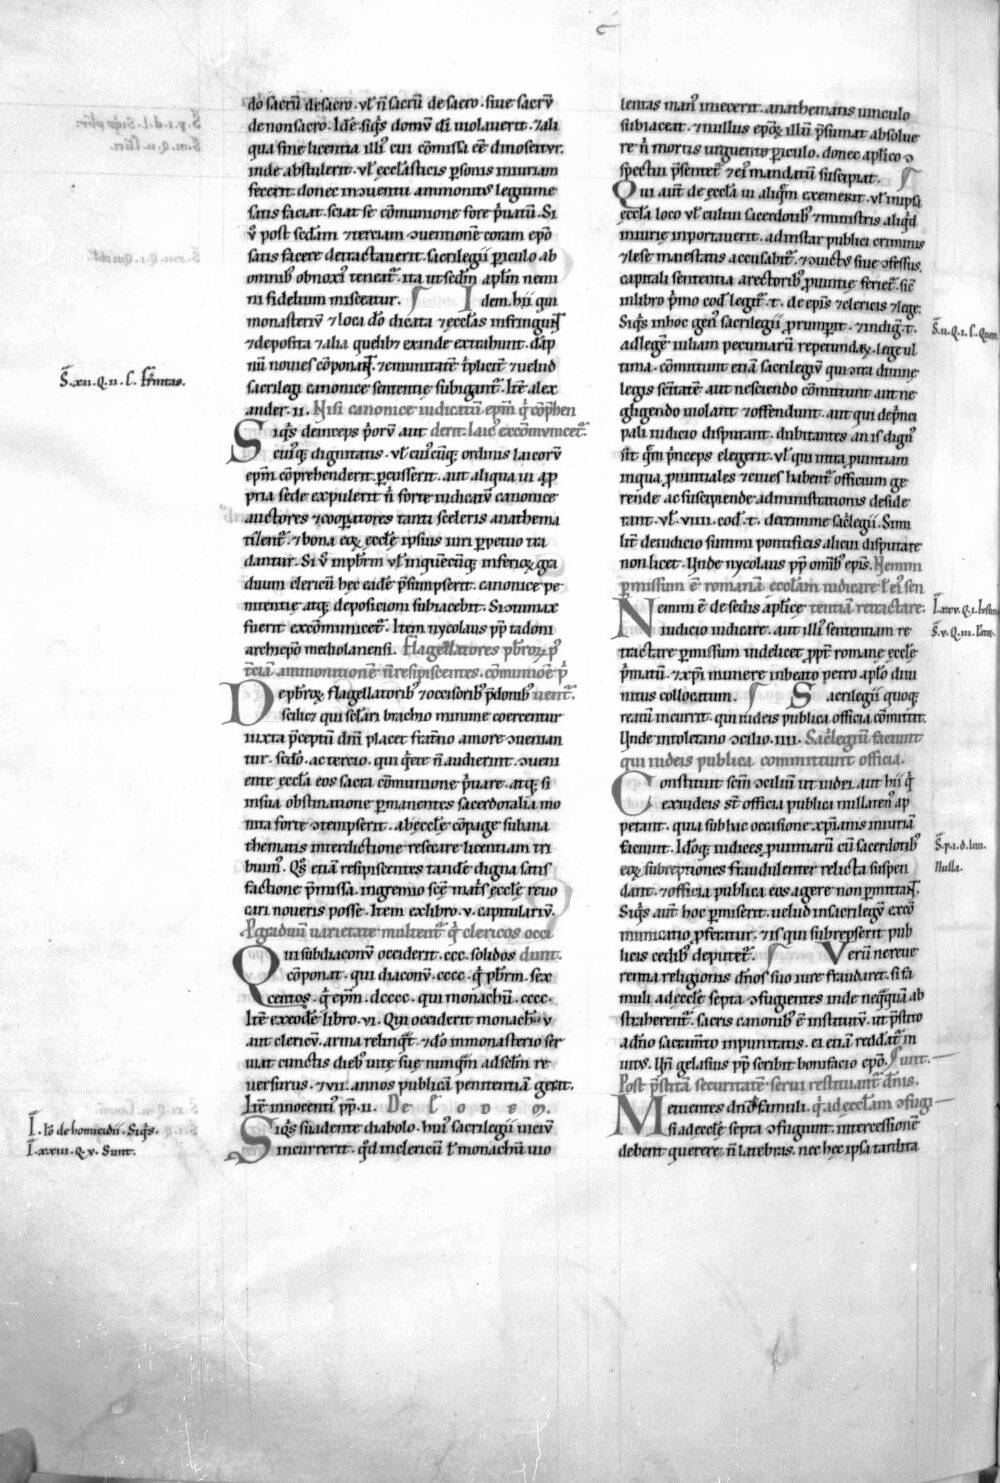 do sacrū de sacro. ul̄ n̄ sacrū de sacro. siue sacrū
de non sacro. Idē. siq̄s domū dī uiolauerit. ⁊ ali
qua sine licentia illi᷒ cui cōmissa eē dinoscit᷑.
inde abstulerit. ul̄ eccl̄asticis p̱sonis iniuriam
fecerit. donec in ↄuentu ammonit᷒ legitime
satis faciat. sciat se cōmunione fore p̄uatū. Si
ū post sc̄dam ⁊ terciam ↄuentionē coram ep̄o
satis facere detractauerit. sacrilegii p̱iculo ab
omnib᷒ obnoxi᷒ teneat᷑. ita ut sedm̄ apl̄m nemi
ni fidelium misceatur. Idem. hii qui
monasteriū ⁊ loca dō dicata ⁊ eccl̄as infringūt
⁊ deposita ⁊ alia quelib᷒ exinde extrahunt. dāp
nū nouies cōponāt. ⁊ emunitatē t̄plicit̄ ⁊ uelud
sacrilegi canonice sententie subigant᷑. Itē alex
ander. ii. Nisi canonice iudicatū ep̄m q̄ cōp̱hen
Siq̄s deinceps p̄orū aut derit. laic᷒ excōmunicet᷑.
cui᷒q; dignitatis. ul̄ cui᷒cūq; ordinis laicorū
ep̄m cōprehenderit. p̱cusserit. aut aliqua ui a p̱p
pria sede expulerit n̄ forte iudicatū canonice
auctores ⁊ coop̱atores tanti sceleris anathema
tisent᷑. ⁊ bona eoꝝ eccl̄ę ipsius iuri p̱petuo tra
dantur. Si ū in p̄brm̄ ul̄ in quēcūq; inferioꝝ gra
duum clericū hec eadē p̄sumpserit. canonice pe
nitentię atq; depositioni subiacebit. Si ↄtumax
fuerit excōmunicet᷑. Item nycolaus pp̄ tadoni
archiep̄o mediolanensi. Flagellatores p̄br̄oꝝ p᷒
t̄ciā ammonitionē n̄ resipiscentes. cōmunioē p̄
De p̄br̄oꝝ flagellatorib᷒ ⁊ occisorib᷒ p̄donib᷒ uent᷑.
scilic᷒ qui sclari brachio minime coercentur
iuxta p̄ceptū dn̄i placet fraīno amore ↄuenian
tur. scd̄o. ac tercio. qui q̄ rēte n̄ audierint. ↄueni
ente eccl̄a eos sacra cōmunione p̄uare. atq; si
in sua obstinatione p̱manentes sacerdotalia mo
nita forte ↄtempserit. ab eccl̄ę cōpage sub ana
thematis interdictione resecare licentiam tri
buim᷒. Q̄s etiā resipiscentes tandē digna satis
factione p̄missa. in gremio sc̄ę mat̄s eccl̄ę reuo
cari noueris posse. Item ex libro. v. capitulariū.
P̱ graduū uarietate multent᷑ q̄ clericos occi
Qui subdiaconū occiderit. ccc. solidos dunt.
cōponat. qui diaconū. cccc. q̄ p̄brm̄. sex
centos. q̄ ep̄m. dcccc. qui monachū. cccc.
Itē ex eodē libro. vi. Qui occiderit monachū
aut clericū. arma relinq̄t. ⁊ dō in monasterio ser
uiat cunctis dieb᷒ uitę suę nunq̄m ad sc̄lm̄ re
uersurus. ⁊ vii. annos publicā penitentiā gerat.
Itē innocenti᷒ pp̄. ii. De Eodem.
Siq̄s suadente diabolo. hui᷒ sacrilegii uiciū
incurrerit. q̄d in clericū ul̄ monachū uio
lentas man᷒ iniecerit. anathematis uinculo
subiaceat. ⁊ nullus ep̄oꝝ illū p̄sumat absolue
re n̄ mortis urguente p̱iculo. donec apl̄ico ↄ
spectui p̄sentet᷑ ⁊ ei᷒ mandatū suscipiat.
Qui aut̄ de eccl̄a ui aliq̄m exemerit. ul̄ in ipsa
eccl̄a loco ul̄ cultui sacerdotib᷒ ⁊ ministris aliq̄d
iniurię inportauerit. ad instar publici criminis
⁊ lese maiestatis accusabit᷑. ⁊ ↄuict᷒ siue ↄfessus.
capitali sententia a rectorib᷒ p̱uintię feriet᷑. sic̄
in libro p̄mo cod̄ legit᷑. t. de ep̄is ⁊ clericis ⁊ lege.
Siq̄s in hoc gen᷒ sacrilegii p̱rumpit. ⁊ in dig̅. t.
ad legē iuliam pecuniarū repetundaꝝ. lege ul
tima. cōmittunt etiā sacrilegiū qui ↄtra diuine
legis sc̄itatē aut nesciendo cōmittunt aut ne
gligendo uiolant ⁊ offendunt. aut qui de p̄nci
pali iudicio disputant. dubitantes an is dign᷒
sit quē p̄nceps elegerit. ul̄ qui intra p̱uintiam
in qua p̱uintiales ⁊ ciues habent᷑ officium ge
rende ac suscipiende administrationis deside
rant. ul̄. viiii. cod̄. t. de crimine sac̄legii. Simi
lit̄ de iudicio summi pontificis alicui disputare
non licet. Unde nycolaus pp̄ omīb᷒ ep̄is. Nemini
p̱missum ē romanā eccl̄am iudicare l̄ ei᷒ sen
Nemini ē de sedis aplicę tentiā retractare.
iudicio iudicare. aut illi᷒ sententiam re
tractare p̱missum uidelicet p̱pt̄ romanę eccl̄ę
p̄matū. ⁊ xp̄i munere in beato petro aplo diui
nitus collocatum. Sacrilegii quoq;
reatū incurrit. qui iudeis publica officia cōmittit.
Unde in toletano ↄcilio. iiii. Sac̄legiū faciunt
qui iudeis publica committunt officia.
Constituit sc̄m ↄciliū ut iudei aut hii q̄
ex iudeis st̄ officia publica nullaten᷒ ap
petant. quia sub hac occasione xp̄ianis iniuriā
faciunt. Idoq; iudices p̱uintiarū cū sacerdotib᷒
eoꝝ subreptiones fraudulenter relicta suspen
dant. ⁊ officia publica eos agere non p̱mittāt.
Siq̄s aut̄ hoc p̱miserit. uelud in sacrilegū excō
municatio p̱feratur. ⁊ is qui subrepserit pub
licis cedib᷒ deputet᷑. Verū ne reue
rentia religionis dn̄os suo iure fraudaret. si fa
muli ad eccl̄ę septa ↄfugientes inde neq̄q̄uā ab
straherent᷑. sacris canonib᷒ ē institutū. ut p̄stito
a dn̄o sacram̄to inpunitatis. ei etiā reddat᷑ in
uit᷒. Un̄ gelasius pp̄ scribit bonifacio ep̄o. sunt.
Post p̄stitā securitatē serui restituant᷑ dn̄is.
Metuentes dn̄os famuli. q̄ ad eccl̄am ↄfugi
si ad eccl̄ę septa ↄfugiunt. intercessionē
debent querere. n̄ latebras. nec hec ipsa tardita
S̄. xii. Q. ii. c. Fr̄nitas.
I. iō de homicidii. Siq̄s.
I. xxiii. Q. v. Sunt.
S̄. ii. Q. i. c. Quem
S̄. v. Q. iii. Pate
S̄. p. i. d. liiii.
Nulla.